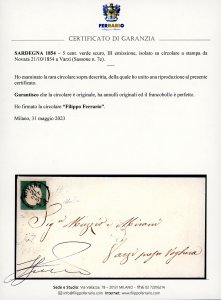 FERRARIO
CERTIFICATO DI GARANZIA
SARDEGNA 1854 - 5 cent. verde scuro, III emissione, isolato su circolare a stampa da
Novara 21/10/1854 a Varzi (Sassone n. 7a).
Ho esaminato la rara circolare sopra descritta, della quale ho unito una riproduzione al presente
certificato.
Garantisco che la circolare è originale, ha annulli originali ed il francobollo è perfetto.
Ho firmato la circolare "Filippo Ferrario".
Milano, 31 maggio 2023
Varzi
Sede e Studio: Via Velasca, 10 - 20122 MILANO - Tel.
info@filippoferrario.com Internet: www.filippoferrario.com